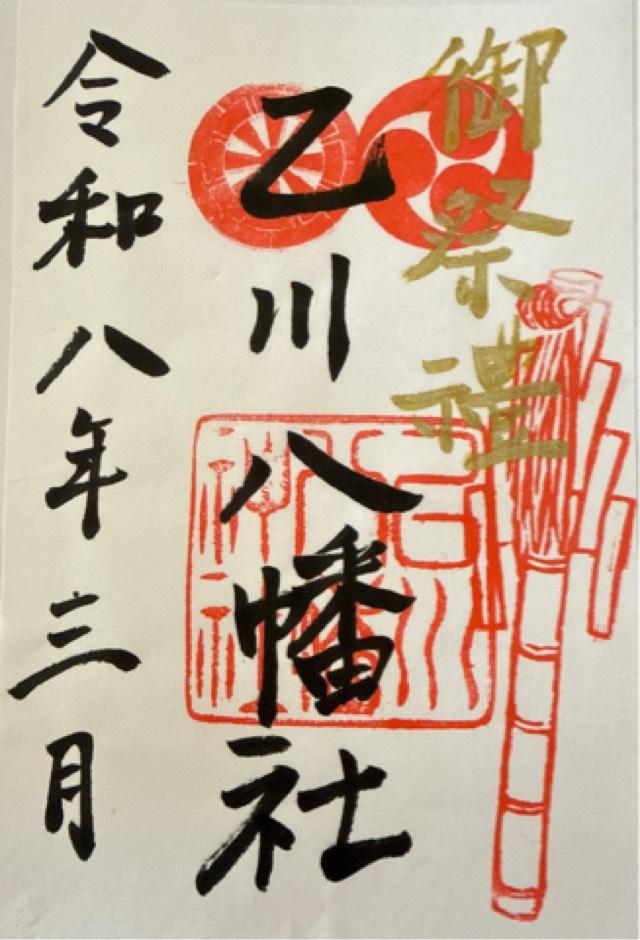 御祭禮
乙川八幡社
令和八年三月